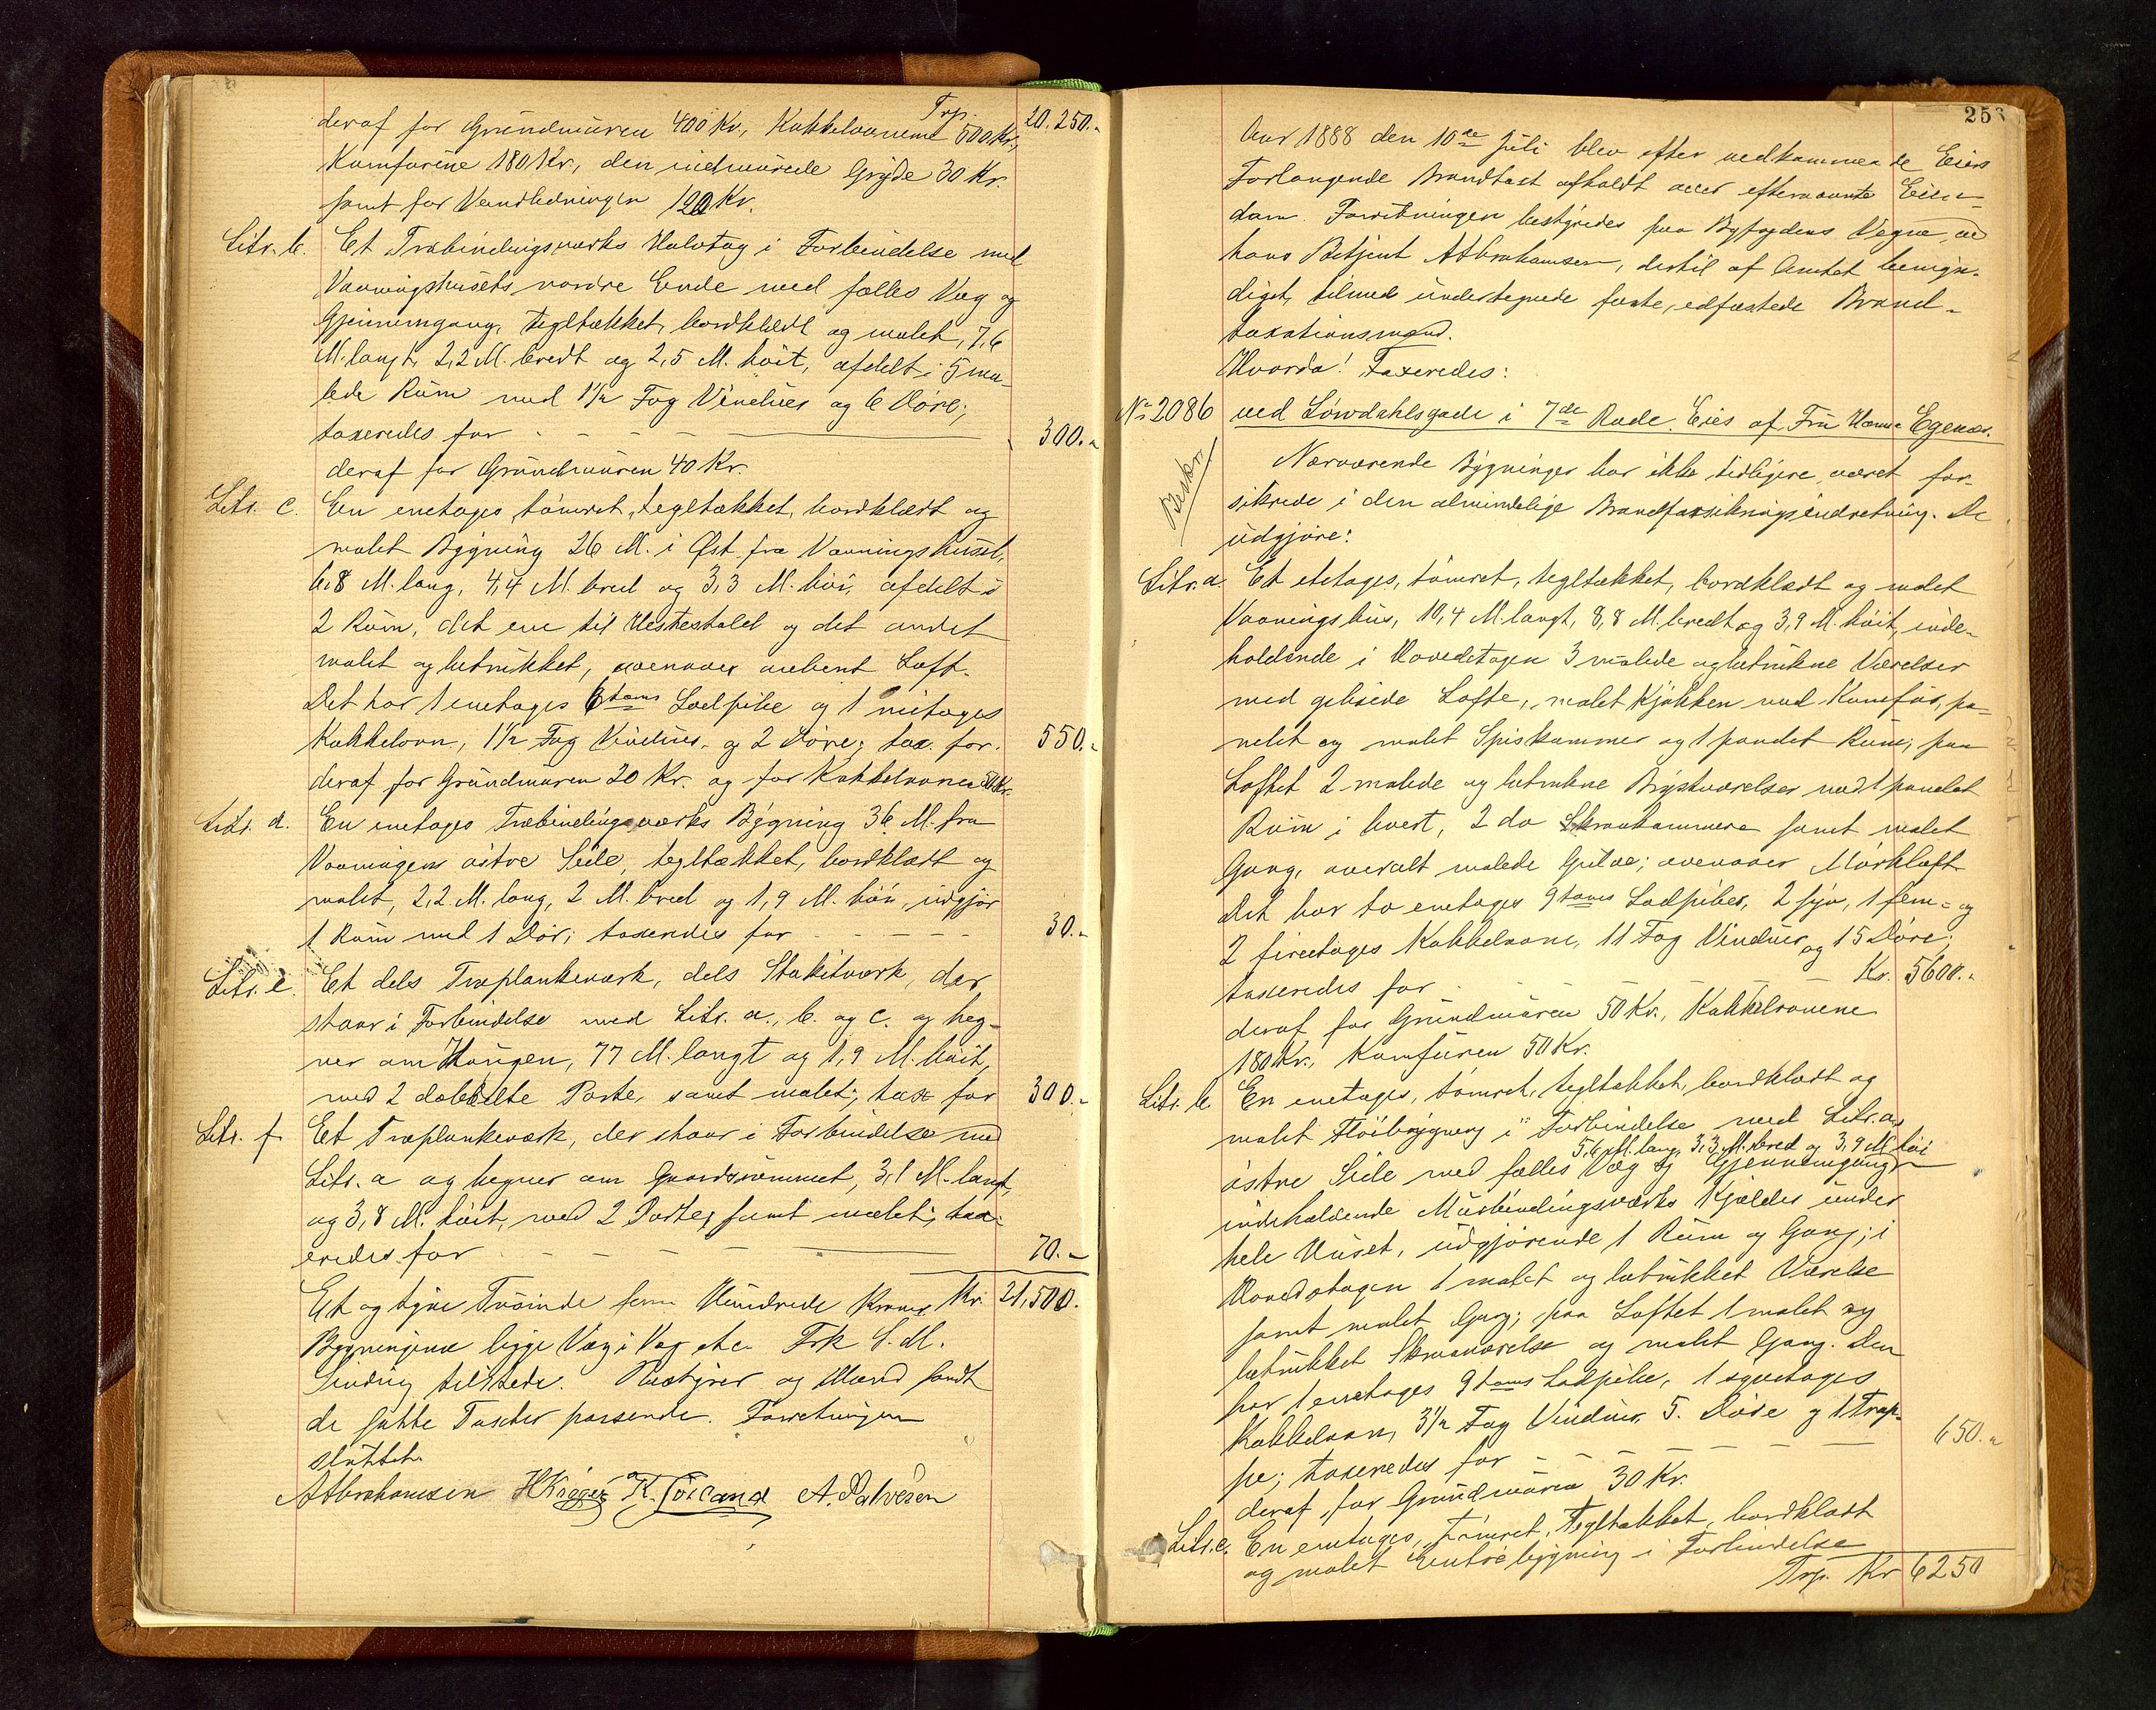 Trp. 20.250.-
deraf for Grundmuren 400 Kr., Kakkelovnene 500 Kr.,
Komfurene 180 Kr., den indmurede Gryde 30 Kr.
samt for Vandledningen 120 Kr.
Litr. b. Et Træbindingsværks Halvtag i Forbindelse med
Vaaningshusets nordre Ende med fælles Væg og
Gjennemgang, tegltækket, bordklædt og malet, 7,6
M. langt, 2,2 M. bredt og 2,5 M. høit, afdelt i 5 ma-
lede Rum med 1½ Fag Vinduer og 6 Døre;
taxeredes for - - - - 300.-
deraf for Grundmuren 40 Kr.
Litr. c. En enetages, tømret, tegltækket, bordklædt og
malet Bygning 26 M. i Øst fra Vaaningshuset,
6,8 M. lang, 4,4 M. bred og 3,3 M. høi, afdelt i
2 Rum, det ene til Hestestald og det andet
malet og betrukket, ovenover aabent Loft.
Det har 1 enetages 6 toms Lodpibe og 1 toetages
Kakkelovn, 1½ Fag Vinduer og 2 Døre; tax. for. 550.-
deraf for Grundmuren 20 Kr. og for Kakkelovnen 50 Kr.
Litr. d. En enetages Træbindingsværks Bygning 36 M. fra
Vaaningens østre Side, tegltækket, bordklædt og
malet, 2,2 M. lang, 2 M. bred og 1,9 M. høi, udgjør
1 Rum med 1 Dør; taxeredes for - - - - 30.-
Litr. e. Et dels Træplankeværk, dels Stakitværk, der
staar i Forbindelse med Litr. a., b. og c. og heg-
ner om Haugen, 77 M. langt og 1,9 M. høit,
med 2 dobbelte Porte, samt malet; tax for 300.-
Litr. f. Et Træplankeværk, der staar i Forbindelse med
Litr. a og hegner om Gaardsrummet, 3,1 M. langt,
og 3,8 M. høit, med 2 Porte, samt malet; tax-
eredes for - - - - 70.-
Et og tyve Tusinde fem Hundrede Kroner Kr. 21,500.
Bygningene ligge Væg i Væg etc. Frk S. M.
Sinding tilstede. Bestyrer og Mænd fandt
de satte Taxter passende. Forretningen
sluttet.
A Abrahamsen H Krøger K. Torland A. Salvesen
253
Aar 1888 den 10de Juli blev efter vedkommende Eiers
Forlangende Brandtaxt afholdt over efternævnte Eien-
dom. Forretningen bestyredes paa Byfogdens Vegne ved
hans Betjent A Abrahamsen, dertil af Amtet bemyn-
diget, tilmed undertegnede faste, edfæstede Brand-
taxationsmænd.
Hvorda! Taxeredes:
No 2086 ved Løvdahlsgade i 7de Rode. Eies af Fru Hanna Egenæs.
Beskr.
Nærværende Bygninger har ikke tidligere været for-
sikrede i den almindelige Brandforsikringsindretning. De
udgjøre:
Litr. a. Et etetages, tømret, tegltækket, bordklædt og malet
Vaaningshus, 10,4 M. langt, 8,8 M. bredt og 3,9 M. høit, inde-
holdende i Hovedetagen 3 malede og betrukne Værelser
med gibsede Lofte, malet Kjøkken med Komfur, pa-
nelet og malet Spiskammer og 1 panelet Rum; paa
Loftet 2 malede og betrukne Brystværelser med 1 panelet
Rum i hvert, 2 do Skraakammere samt malet
Gang, overalt malede Gulve; ovenover Mørkloft.
Det har to enetages 9 toms Lodpiber, 2 syv, 1 fem- og
2 fireetages Kakkelovne, 11 Fag Vinduer og 15 Døre;
taxeredes for - - - - Kr. 5600.-
deraf for Grundmuren 50 Kr., Kakkelovnene
180 Kr., Komfuren 50 Kr.
Litr. b. En enetages, tømret, tegltækket, bordklædt og
malet Fløibygning i Forbindelse med Litr. a,
5,6 M. lang, 3,3 M. bred og 3,9 M. høi
østre Side med fælles Væg og Gjennemgang
indeholdende Murbindingsværks Kjælder under
hele Huset, udgjørende 1 Rum og Gang; i
Hovedetagen 1 malet og betrukket Værelse
samt malet Gang; paa Loftet 1 malet og
betrukket Skraaværelse og malet Gang. Den
har 1 enetages 9 toms Lodpibe, 1 syvetages
Kakkelovn, 3½ Fag Vinduer, 5. Døre og 1 Trap-
pe; taxeredes for - - - - 650.-
deraf for Grundmuren 30 Kr.
Litr. c. En enetages, tømret, tegltækket, bordklædt
og malet Entrebygning i Forbindelse
Trp. Kr 6250